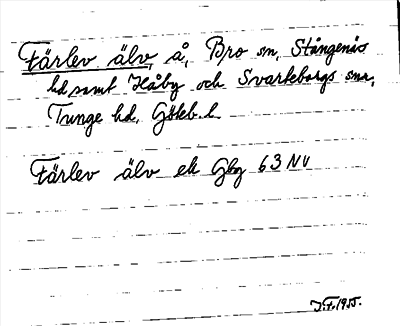 Färlev älv, å, Bro sn, Stångenäs
hd samt Håby och Svarteborgs snr,
Tunge hd, Göteb. l.
Färlev älv ek Gbg 63 NV
J.F. 1955.